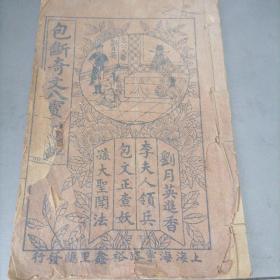 包斷奇文寶
劉月英進香
李夫人領兵
包文正查妖
讓大聖鬧法
上海海寧路裕鑫里
發行